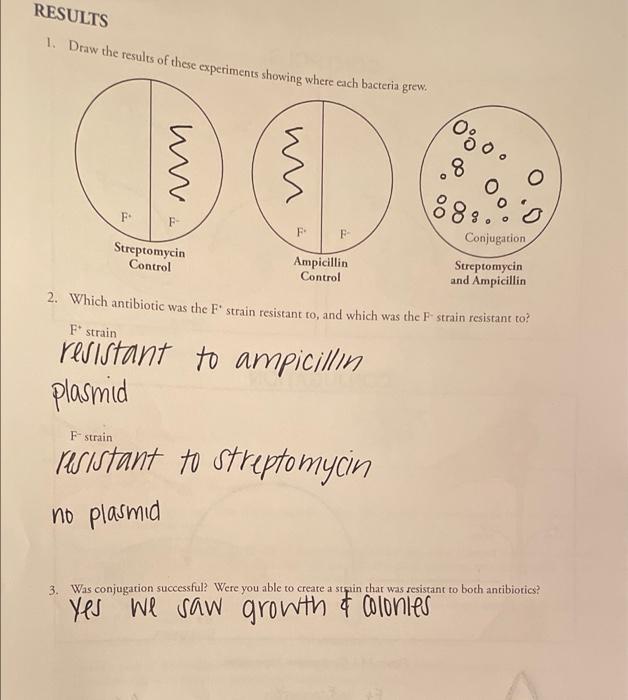 RESULTS
1. Draw the results of these experiments showing where each bacteria grew.
F+ F-
Streptomycin
Control
F+ F-
Ampicillin
Control
Conjugation
Streptomycin
and Ampicillin
2. Which antibiotic was the F+ strain resistant to, and which was the F- strain resistant to?
F+ strain
resistant to ampicillin
plasmid
F- strain
resistant to streptomycin
no plasmid
3. Was conjugation successful? Were you able to create a strain that was resistant to both antibiotics?
Yes we saw growth & colonies